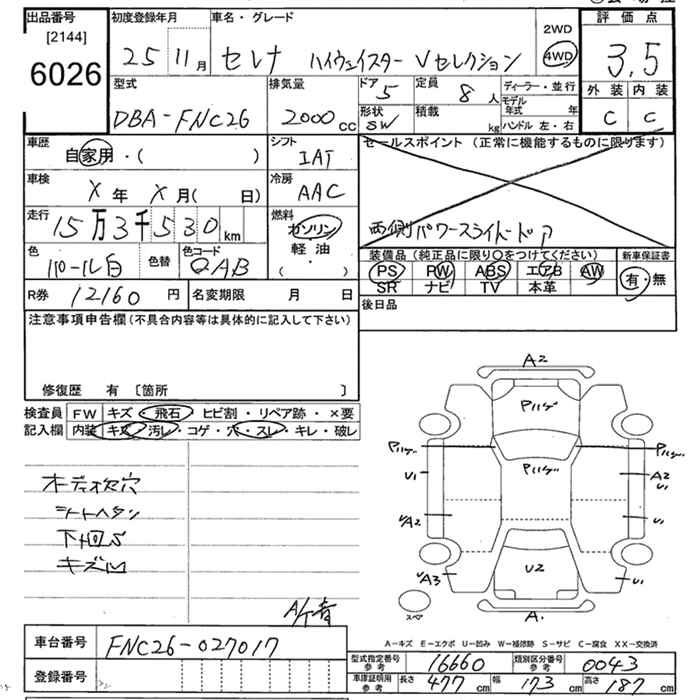 出品番号 初度登録年月 車名・グレード 2WD 評価点
[2144] 25 11月 セレナ ハイウェイスター Vセレクション 4WD 3.5
6026 外装 内装
型式 排気量 ドア 5 定員 8人 ディーラー・並行 C C
DBA-FNC26 2000cc 形状 SW 積載 kg モデル年式 年
ハンドル 左・右
車歴 自家用・( ) シフト IAT セールスポイント (正常に機能するものに限ります)
車検 X年 X月( 日) 冷房 AAC
走行 15万3千530km 燃料 ガソリン 軽油 ・( ) 両側パワースライドドア
色 パール白 色替 色コード QAB 装備品(純正品に限り〇をつけてください) 新車保証書
PS PW ABS エアB AW 有・無
SR ナビ TV 本革
R券 12160円 名変期限 月 日 後日品
注意事項申告欄(不具合内容等は具体的に記入して下さい)
修復歴 有 〔箇所 〕
検査員 FW キズ・飛石・ヒビ割・リペア跡・×要
記入欄 内装 キズ・汚レ・コゲ・穴・スレ・キレ・破レ
A2
Pハゲ
Pハゲ Pハゲ Pハゲ
U1 A2 U1
UA2 U1
UA3 U2 U1
スペア A1
オーディオ欠穴
シートヘタリ
下回り
キズ凹
A-キズ E-エクボ U-凹み W-補修跡 S-サビ C-腐食 XX-交換済
車台番号 FNC26-027017
型式指定番号参考 16660 類別区分番号参考 0043
登録番号
車庫証明用参考 長さ 477cm 幅 173cm 高さ 187cm